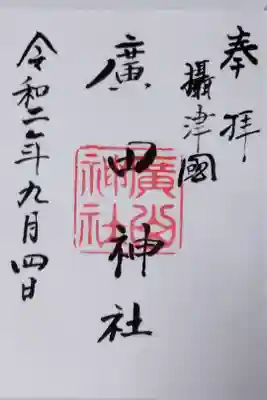 奉拝
攝津國
廣田神社
廣田神社
令和二年九月四日